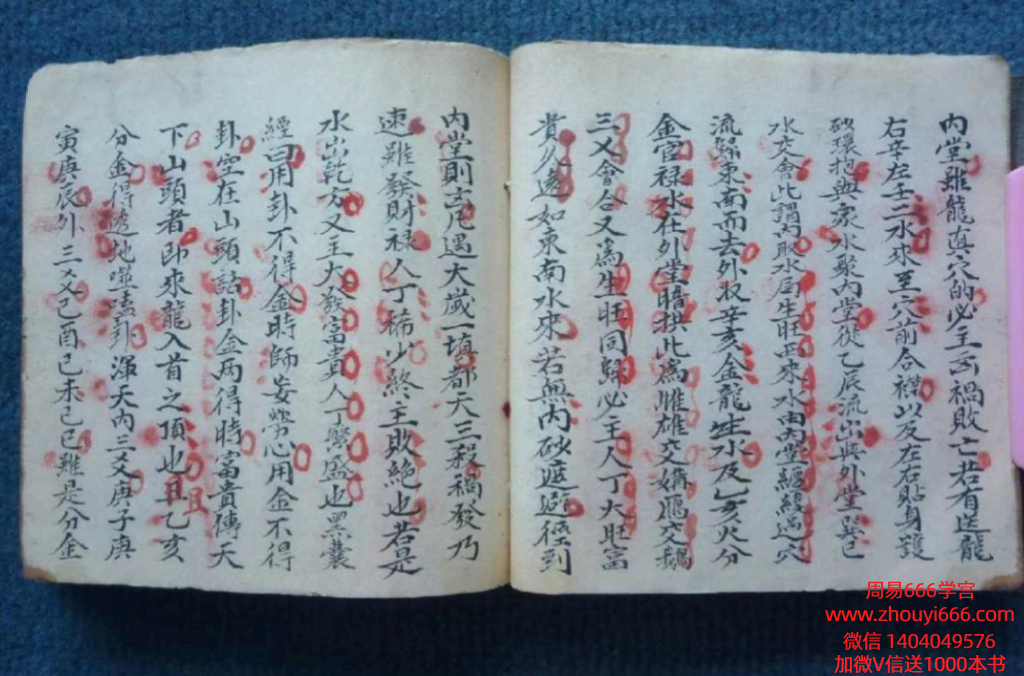 內堂雖龍真穴的必主凶禍敗亡若有送龍
右辛左壬二水來至穴前合襟以及左右貼身護
砂環抱與衆水聚內堂從乙辰流出與外堂巽巳
水交會此謂內取水局生旺西來水由內堂纏繞過穴
流歸東南而去外收辛亥金龍生水及乙亥火分
金官禄水在外堂暗拱此為雌雄交媾鴈交鵝
三叉會合又為生旺同歸必主人丁大旺富
貴久遠如東南水來若無內砂遮避徑到
內堂則吉凡遇大歲一塡都天三殺禍發乃
速雖發財禄人丁稀少終主敗絕也若是
水出乾方又主大發富貴人丁繁盛也黑囊
經曰用卦不得金時師妄勞心用金不得
卦空在山頭話卦金两得時富貴傳天
下山頭者即來龍入首之頂也且乙亥
且
分金得透地噬嗑卦渾天內三爻庚子庚
寅庚辰外三爻己酉己未己巳雖是分金
周易666学宫
www.zhouyi666.com
微信 1404049576
加微V信送1000本书